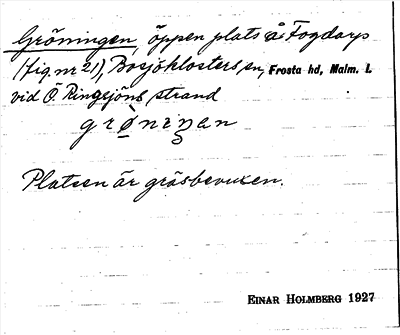 Gröningen, öppen plats å Fogdarp
(fig. nr 21), Bosjöklosters sn, Frosta hd, Malm. l.
vid Ö. Ringsjöns strand
grøningan
Platsen är gräsbevuxen.
EINAR HOLMBERG 1927